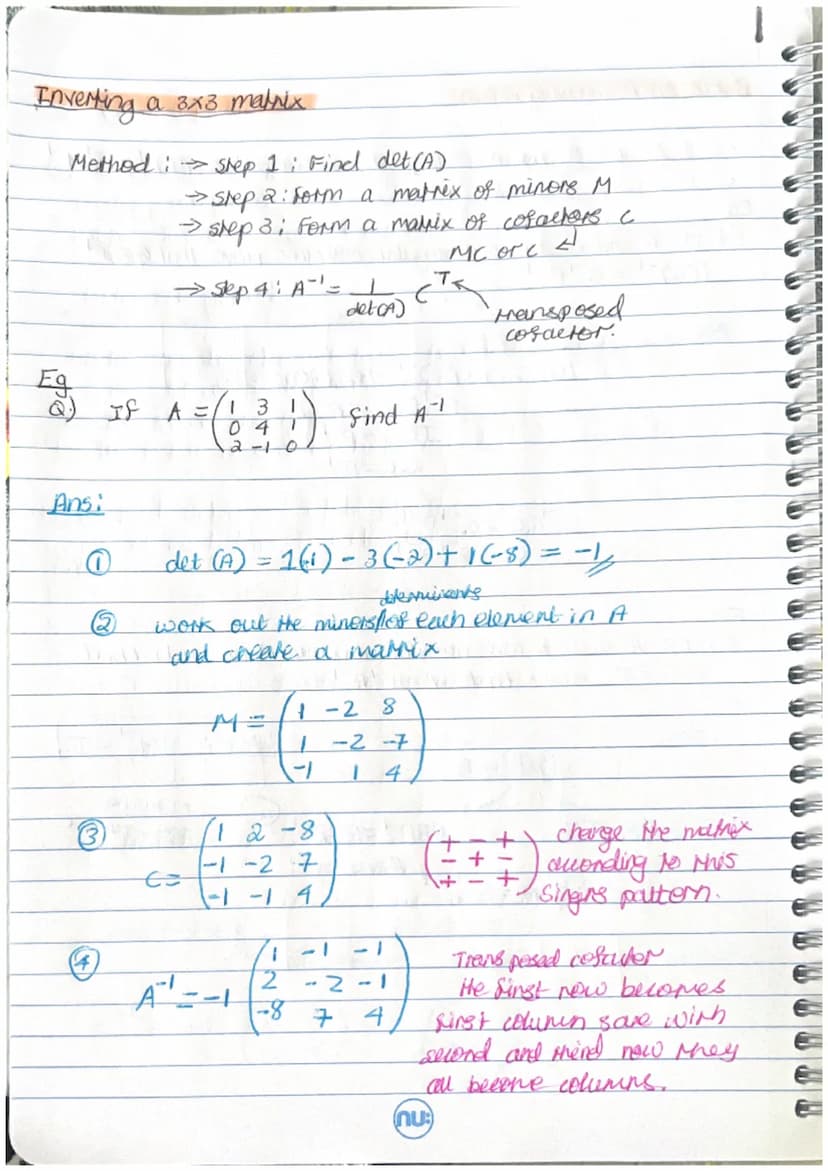 Inverting a 3x3 matrix
Method : → Step 1 : Find det(A)
→ Step 2 : Form a matrix of minors M
→ Step 3 : Form a matrix of cofactors C
MC or C ↵
→ Step 4 : A⁻¹ = 1/det(A) Cᵀ
transposed
cofactor.
Eg
Q.) If A = (1 3 1 Find A⁻¹
0 4 1
2 -1 0)
Ans :
① det (A) = 1(1) - 3(-2) + 1(-8) = -1
determinants
② work out the minors/of each element in A
and create a matrix
M = (1 -2 8
1 -2 -7
-1 1 4)
③ C = (1 2 -8
-1 -2 7
-1 -1 4)
(+ - +
- + -
+ - +)
change the matrix
according to this
Singns pattern.
④ A⁻¹ = -1 (1 -1 -1
2 -2 -1
-8 7 4)
Transposed cofactor
the first row becomes
first column same with
second and third row they
all become columns.
nu: